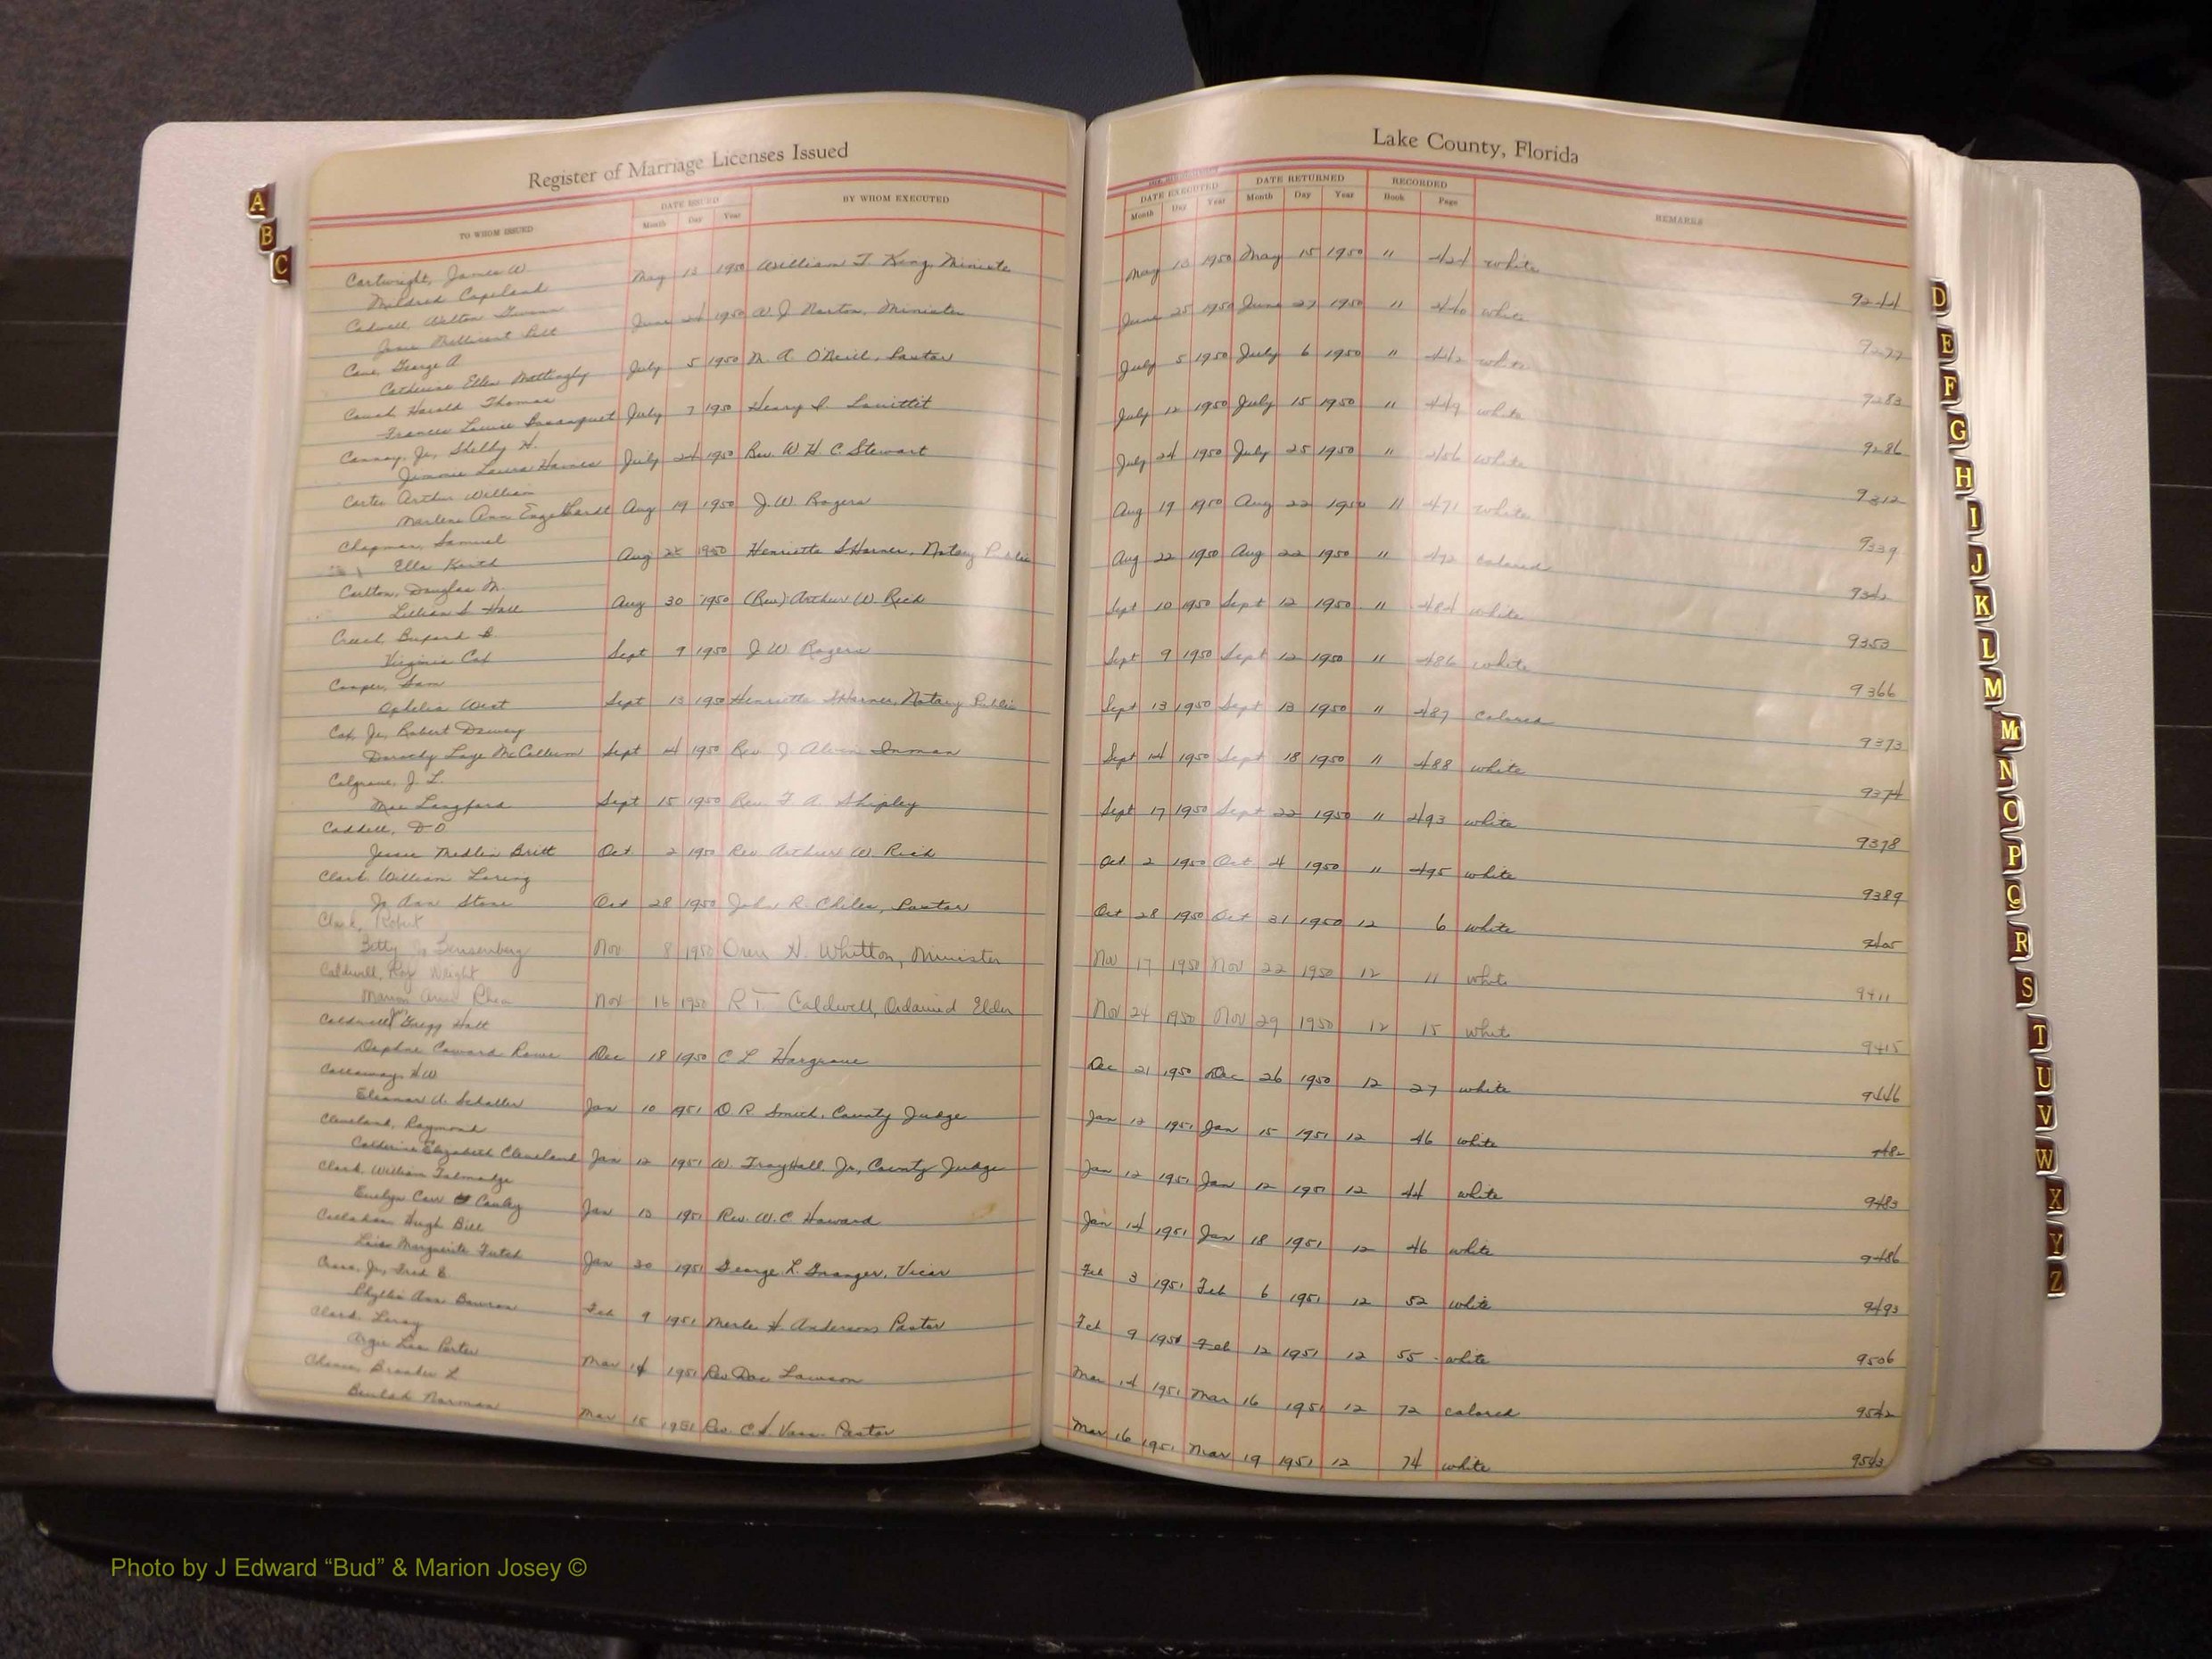 Register of Marriage Licenses Issued
Lake County, Florida
TO WHOM ISSUED DATE ISSUED BY WHOM EXECUTED DATE EXECUTED DATE RETURNED RECORDED REMARKS
Month Day Year Month Day Year Month Day Year Book Page
Cartwright, James W
Mildred Copeland May 13 1950 William T. King, Ministe May 13 1950 May 15 1950 11 424 white 9244
Caldwell, Walton
Millicent June 24 1950 W J Norton, Minister June 25 1950 June 27 1950 11 440 white 9277
Cane, George A
Catherine Ellen Mattingly July 5 1950 M. A. O'Neill, Pastor July 5 1950 July 6 1950 11 442 white 9283
Harold Thomas
Frances Louise July 7 1950 Henry July 12 1950 July 15 1950 11 449 white 9286
Jr, Shelby H.
Jimmie Laura Haines July 24 1950 Rev. W H C Stewart July 24 1950 July 25 1950 11 456 white 9312
Carter Arthur William
Marlene Ann Engelhardt Aug 19 1950 J. W. Rogers Aug 19 1950 Aug 22 1950 11 471 white 9339
Chapman, Samuel
Ella Keith Aug 1950 Henrietta S Harner, Notary Public Aug 22 1950 Aug 22 1950 11 472 colored 9342
Carlton, Douglas M.
Lillian S. Hall Aug 30 1950 (Rev) Arthur W. Rich Sept 10 1950 Sept 12 1950 11 484 white 9353
Creech, Buford B
Virginia Cox Sept 9 1950 J. W. Rogers Sept 9 1950 Sept 12 1950 11 486 white 9366
Cooper, Sam
Ophelia West Sept 13 1950 Henrietta S Harner, Notary Public Sept 13 1950 Sept 13 1950 11 487 colored 9373
Cox, Jr, Robert Dewey
Dorothy Faye McCullum Sept 14 1950 Rev. J. Alvin Inman Sept 14 1950 Sept 18 1950 11 488 white 9374
Colgrove, J. L.
Mae Langford Sept 15 1950 Rev. F. A. Shipley Sept 17 1950 Sept 22 1950 11 493 white 9378
Caddell, D O
Jessie Medlin Britt Oct 2 1950 Rev. Arthur W. Rich Oct 2 1950 Oct 4 1950 11 495 white 9389
Clark William Loring
Jo Ann Stone Oct 28 1950 John R. Chiles, Pastor Oct 28 1950 Oct 31 1950 12 6 white 9405
Clark, Robert
Betty Nov 8 1950 Oren H. Whitton, Minister Nov 17 1950 Nov 22 1950 12 11 white 9411
Caldwell, Roy Wright
Marion Nov 16 1950 R T. Caldwell, Ordained Elder Nov 24 1950 Nov 29 1950 12 15 white 9415
Caldwell Jr, Gregg Holt
Daphne Coward Rowe Dec 18 1950 C L Hargrove Dec 21 1950 Dec 26 1950 12 27 white 9446
Callaway, H W
Eleanor U. Schaller Jan 10 1951 D R Smith, County Judge Jan 12 1951 Jan 15 1951 12 46 white
Cleveland, Raymond
Catherine Elizabeth Cleveland Jan 12 1951 W. Troy Hall, Jr, County Judge Jan 12 1951 Jan 12 1951 12 44 white 9483
Clark, William Talmadge
Evelyn Carr Cauley Jan 13 1951 Rev. W. C Howard Jan 14 1951 Jan 18 1951 12 46 white 9486
Callahan Hugh Bill
Lois Marguerite Futch Jan 30 1951 George L. Granger, Vicar Feb 3 1951 Feb 6 1951 12 52 white 9493
Cross, Jr, Fred E.
Phyllis Ann Bowron Feb 9 1951 Merle H Anderson Pastor Feb 9 1951 Feb 12 1951 12 55 white 9506
Clark Leroy
Argie Lee Porter Mar 14 1951 Rev Doc Lawson Mar 14 1951 Mar 16 1951 12 72 colored 9542
L
Beulah Norman Mar 15 1951 Rev. C. S. Vann Pastor Mar 16 1951 Mar 19 1951 12 74 white 9543
A
B
C
D
E
F
G
H
I
J
K
L
M
Mc
N
O
P
Q
R
S
T
U
V
W
X
Y
Z
Photo by J Edward “Bud” & Marion Josey ©